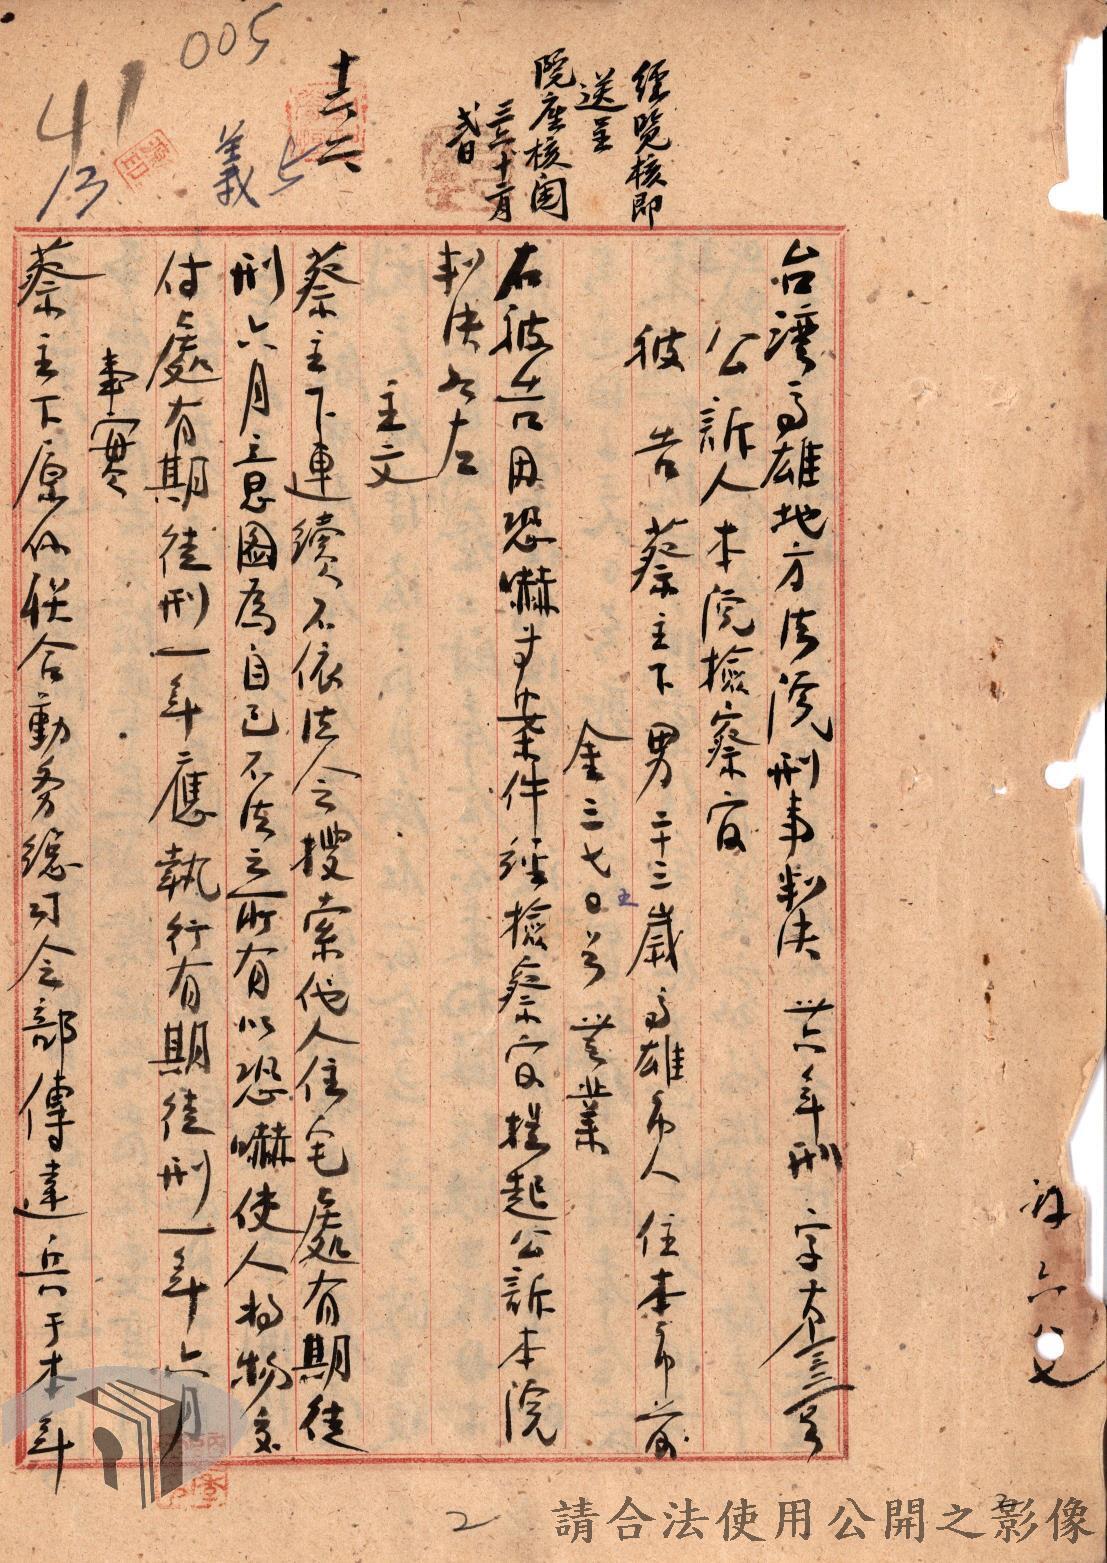 005
41
13
義 七
十二
六
經覽核即
送呈
院座核閱
三六十二月
台灣高雄地方法院刑事判決 卅六年刑字第 號
公訴人本院檢察官
被告 蔡主下 男 二十三歲 高雄市人 住本市前
金三七〇號 無業
五
右被告因恐嚇等案件經檢察官提起公訴本院
判決如左
主文
蔡主下連續不依法令搜索他人住宅處有期徒
刑六月意圖為自己不法之所有以恐嚇使人將物交
付處有期徒刑一年應執行有期徒刑一年六月
事實
蔡主下原係聯合勤務總司令部傳達兵于本年
2
請合法使用公開之影像